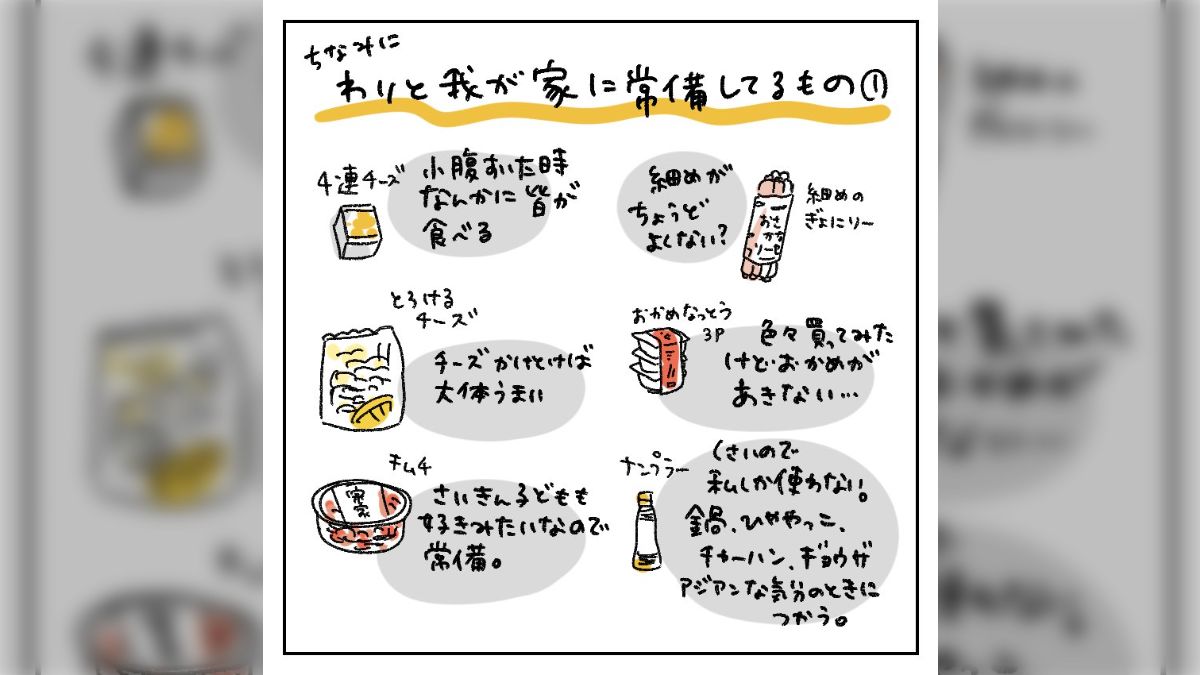 ちなみに
わりと我が家に常備してるもの①
4連チーズ
小腹すいた時
なんかに皆が
食べる
細めが
ちょうど
よくない?
細めの
ぎょにソー
おさ
かな
ソーセ
とろける
チーズ
チーズかけとけば
大体うまい
おかめなっとう
3P
色々買ってみた
けどおかめが
あきない…
キムチ
さいきん子どもも
好きみたいなので
常備。
ナンプラー
くさいので
私しか使わない。
鍋、ひややっこ、
チャーハン、ギョウザ
アジアンな気分のときに
つかう。